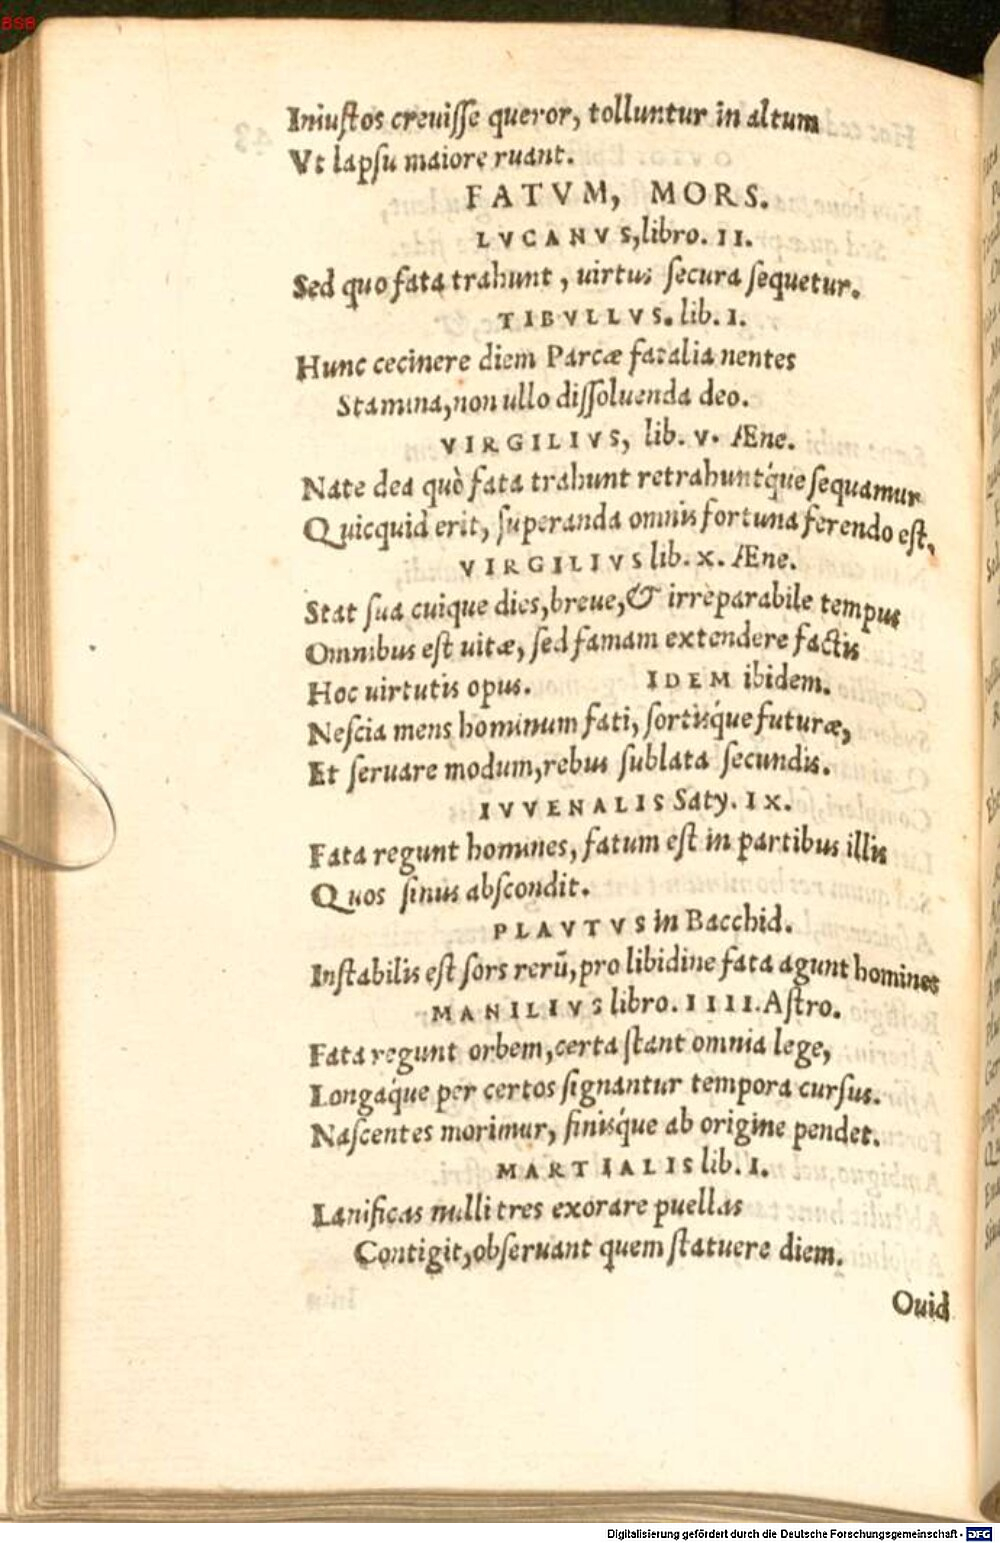 BSB
Iniustos creuisse queror, tolluntur in altum
Vt lapsu maiore ruant.
FATVM, MORS.
LVCANVS, libro. II.
Sed quo fata trahunt, uirtus secura sequetur.
TIBVLLVS. lib. I.
Hunc cecinere diem Parcæ fatalia nentes
Stamina, non ullo dissoluenda deo.
VIRGILIVS, lib. V. Æne.
Nate dea quò fata trahunt retrahuntq́ue sequamur
Quicquid erit, superanda omnis fortuna ferendo est.
VIRGILIVS lib. X. Æne.
Stat sua cuique dies, breue, & irreparabile tempus
Omnibus est uitæ, sed famam extendere factis
Hoc uirtutis opus. IDEM ibidem.
Nescia mens hominum fati, sortisq́ue futuræ,
Et seruare modum, rebus sublata secundis.
IVVENALIS Saty. IX.
Fata regunt homines, fatum est in partibus illis
Quos sinus abscondit.
PLAVTVS in Bacchid.
Instabilis est sors rerū, pro libidine fata agunt homines
MANILIVS libro. IIII. Astro.
Fata regunt orbem, certa stant omnia lege,
Longaq́ue per certos signantur tempora cursus.
Nascentes morimur, finisq́ue ab origine pendet.
MARTIALIS lib. I.
Lanificas nulli tres exorare puellas
Contigit, obseruant quem statuere diem.
Ouid
Digitalisierung gefördert durch die Deutsche Forschungsgemeinschaft - DFG